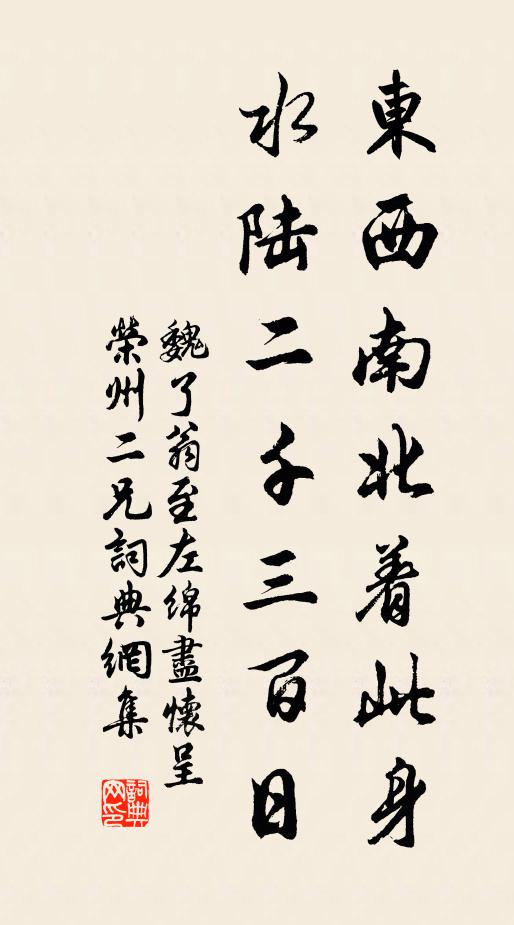 東西南北着此身
水陆二千三百日
魏了翁至左绵盡懷呈
榮州二兄詞典網集
詞典
网印